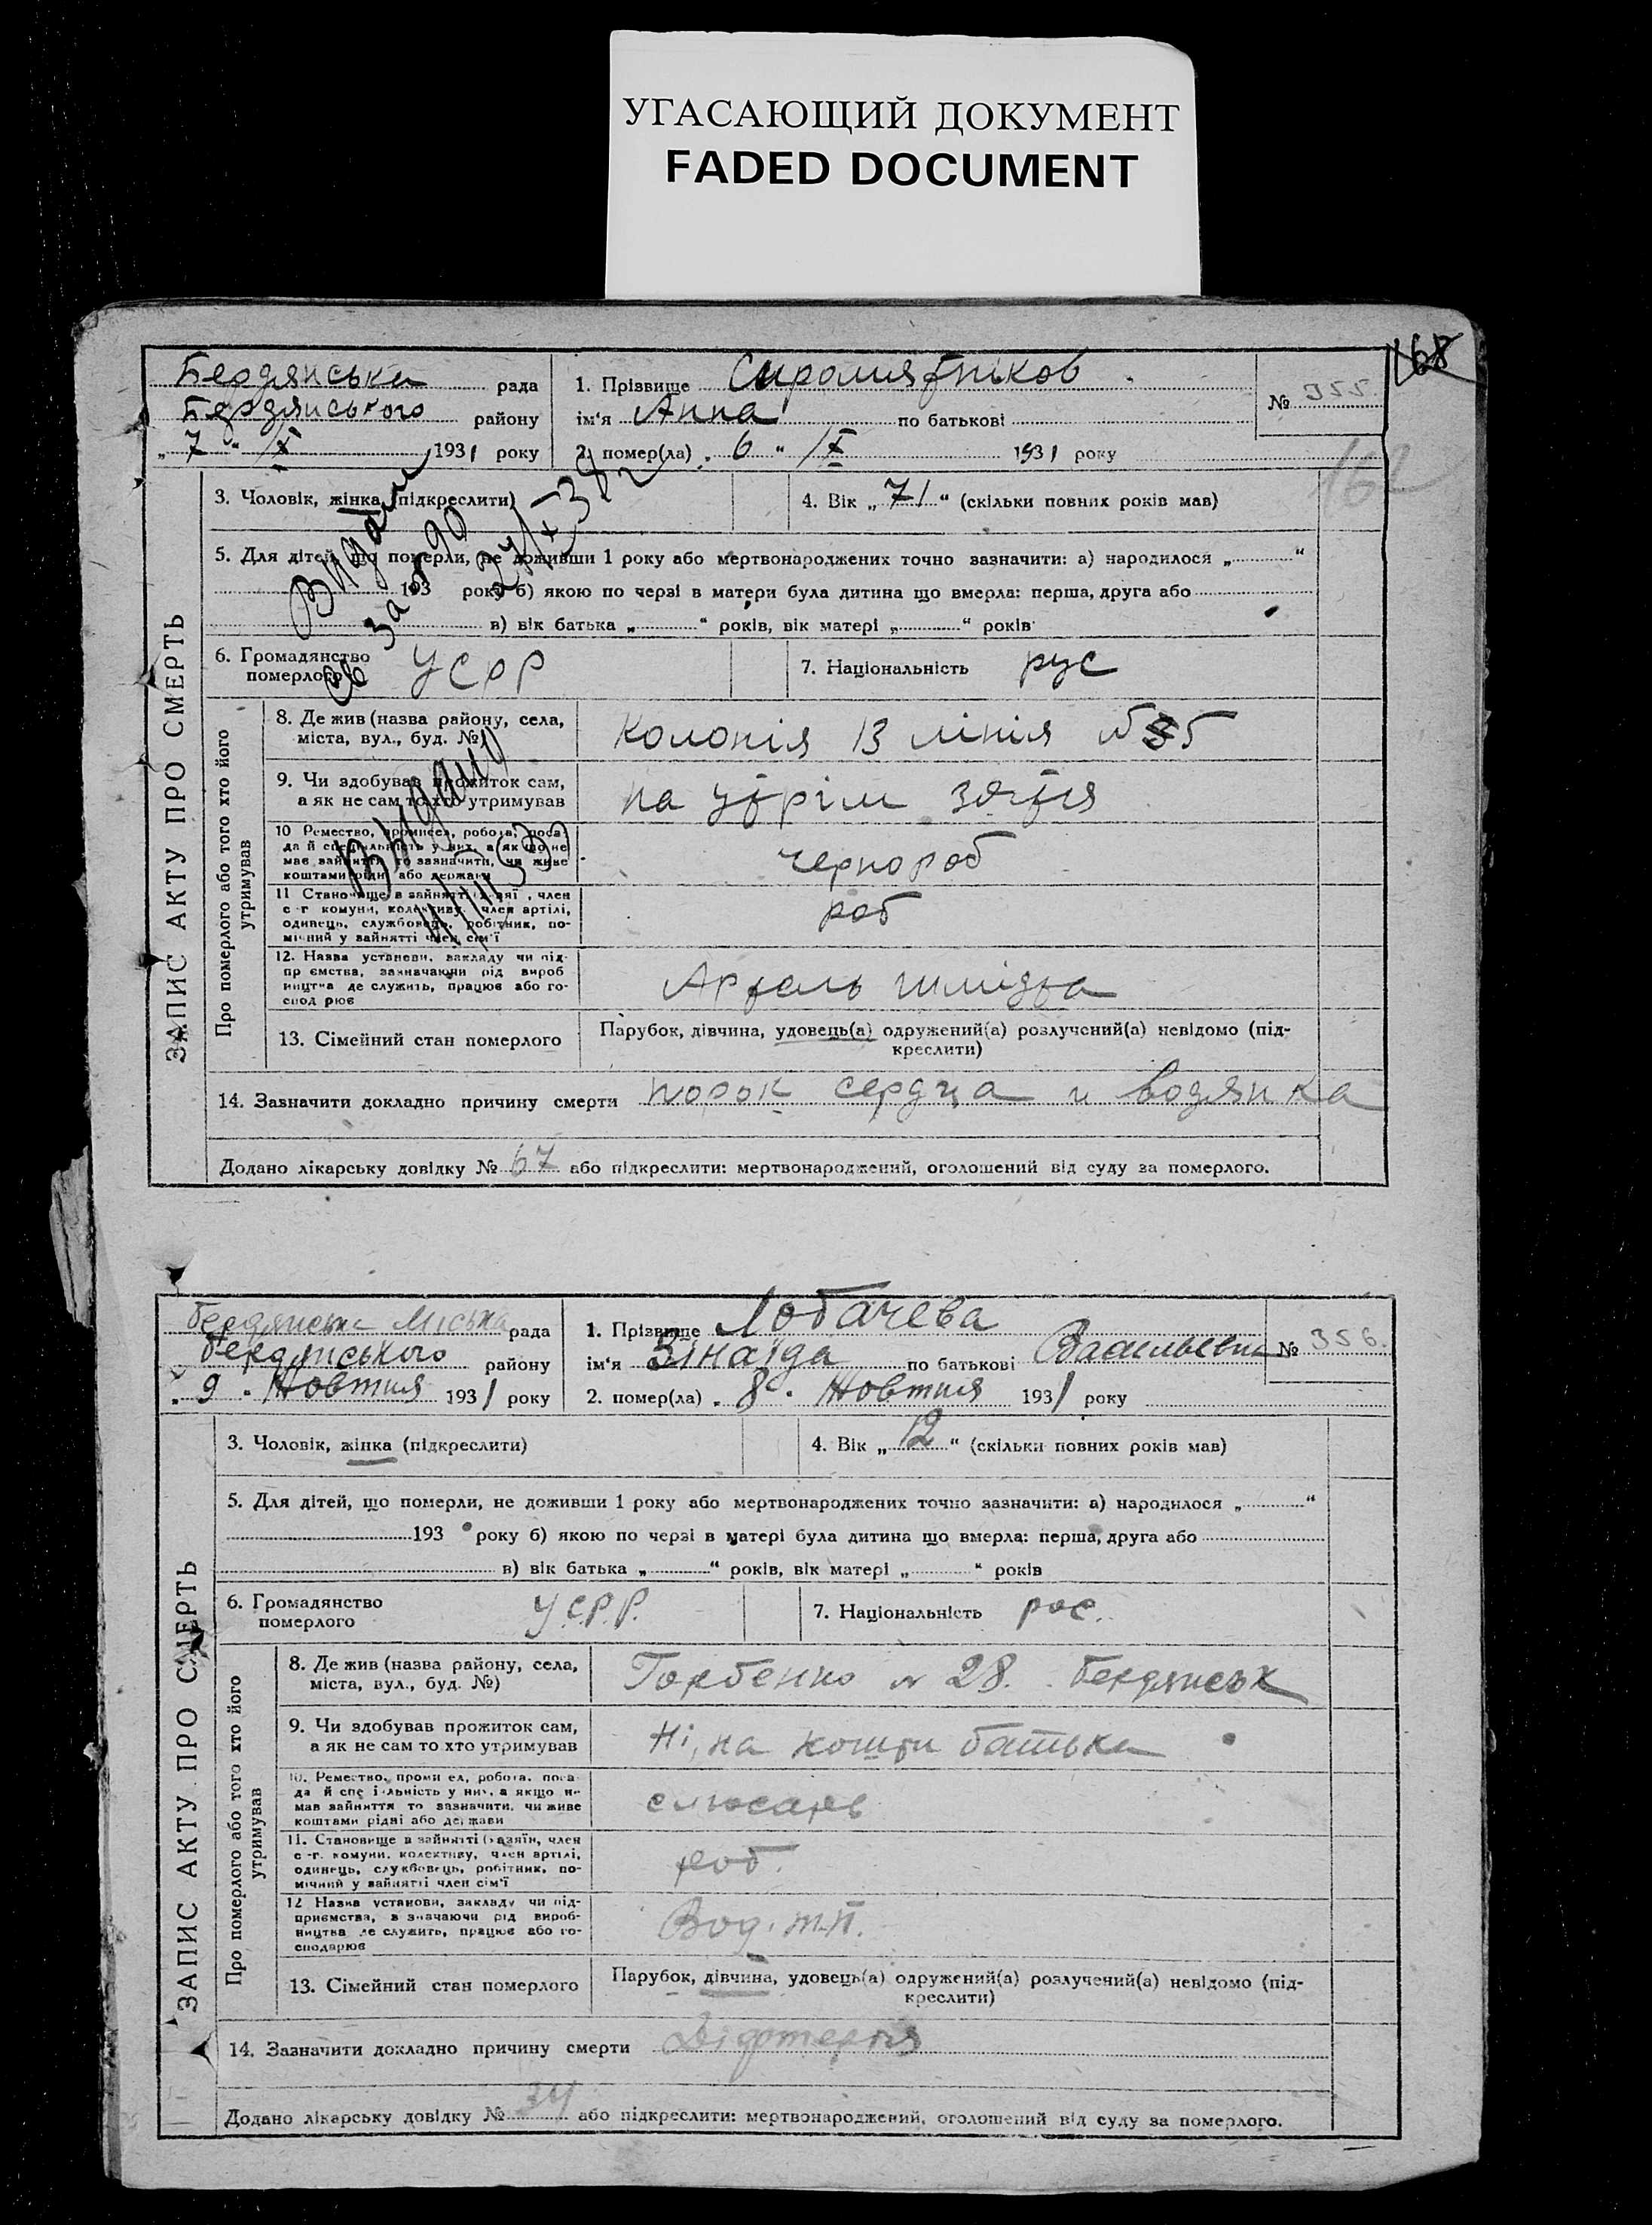 УГАСАЮЩИЙ ДОКУМЕНТ
FADED DOCUMENT
168
162
Бердянська рада
Бердянського району
„ 7 “ IX 1931 року
1. Прізвище Сиромятніков
ім‘я Анна по батькові
2. помер(ла) „ 6 “ IX 1931 року
№ 355.
ЗАПИС АКТУ ПРО СМЕРТЬ
3. Чоловік, жінка (підкреслити)
4. Вік „ 71 “ (скільки повних років мав)
5. Для дітей, що померли, не доживши 1 року або мертвонароджених точно зазначити: а) народилося „ “
193 року б) якою по черзі в матери була дитина що вмерла: перша, друга або
в) вік батька „ “ років, вік матері „ “ років
6. Громадянство
померлого УСРР
7. Національність рус
Про померлого або того хто його
утримував
8. Де жив (назва району, села,
міста, вул., буд. №)
Колонія 13 лінія №5
9. Чи здобував прожиток сам,
а як не сам то хто утримував
на утрім зятя
10 Ремество, промисел, робота, поса-
да й спеціяльність у них, а якщо не
мав зайняття то зазначити, чи живе
коштами рідні або держави
чернороб
11 Становище в зайнятті (хазяї, член
с-г комуни, колективу, член артілі,
одинець, службовець, робітник, по-
мічний у зайнятті член сім‘ї
роб
12. Назва установи, закладу чи під-
приємства, зазначаючи рід вироб
ництва де служить, працює або го-
сподарює
Артель шмідта
13. Сімейний стан померлого
Парубок, дівчина, удовець(а) одружений(а) розлучений(а) невідомо (під-
креслити)
14. Зазначити докладно причину смерти порок сердца и водянка
Додано лікарську довідку № 67 або підкреслити: мертвонароджений, оголошений від суду за померлого.
Видано
за № 90
Видано
Бердянська Міська рада
Бердянського району
„ 9 “ Жовтня 1931 року
1. Прізвище Лобачева
ім‘я Зінаїда по батькові Васильевна
2. помер(ла) „ 8 “ Жовтня 1931 року
№ 356.
ЗАПИС АКТУ ПРО СМЕРТЬ
3. Чоловік, жінка (підкреслити)
4. Вік „ 12 “ (скільки повних років мав)
5. Для дітей, що померли, не доживши 1 року або мертвонароджених точно зазначити: а) народилося „ “
193 року б) якою по черзі в матері була дитина що вмерла: перша, друга або
в) вік батька „ “ років, вік матері „ “ років
6. Громадянство
померлого У.С.Р.Р.
7. Національність рос.
Про померлого або того хто його
утримував
8. Де жив (назва району, села,
міста, вул., буд. №)
Горбенко № 28. Бердянськ
9. Чи здобував прожиток сам,
а як не сам то хто утримував
Ні, на кошти батька
10. Ремество, промисел, робота, поса-
да й спеціяльність у них, а якщо не
мав зайняття то зазначити, чи живе
коштами рідні або держави
слюсарь
11. Становище в зайнятті (хазяїн, член
с-г. комуни, колективу, член артілі,
одинець, службовець, робітник, по-
мічний у зайнятті член сім‘ї
роб.
12 Назва установи, закладу чи під-
приємства, зазначаючи рід вироб-
ництва де служить, працює або го-
сподарює
Вод. т.п.
13. Сімейний стан померлого
Парубок, дівчина, удовець(а) одружений(а) розлучений(а) невідомо (під-
креслити)
14. Зазначити докладно причину смерти Діфтерія
Додано лікарську довідку № 34 або підкреслити: мертвонароджений, оголошений від суду за померлого.